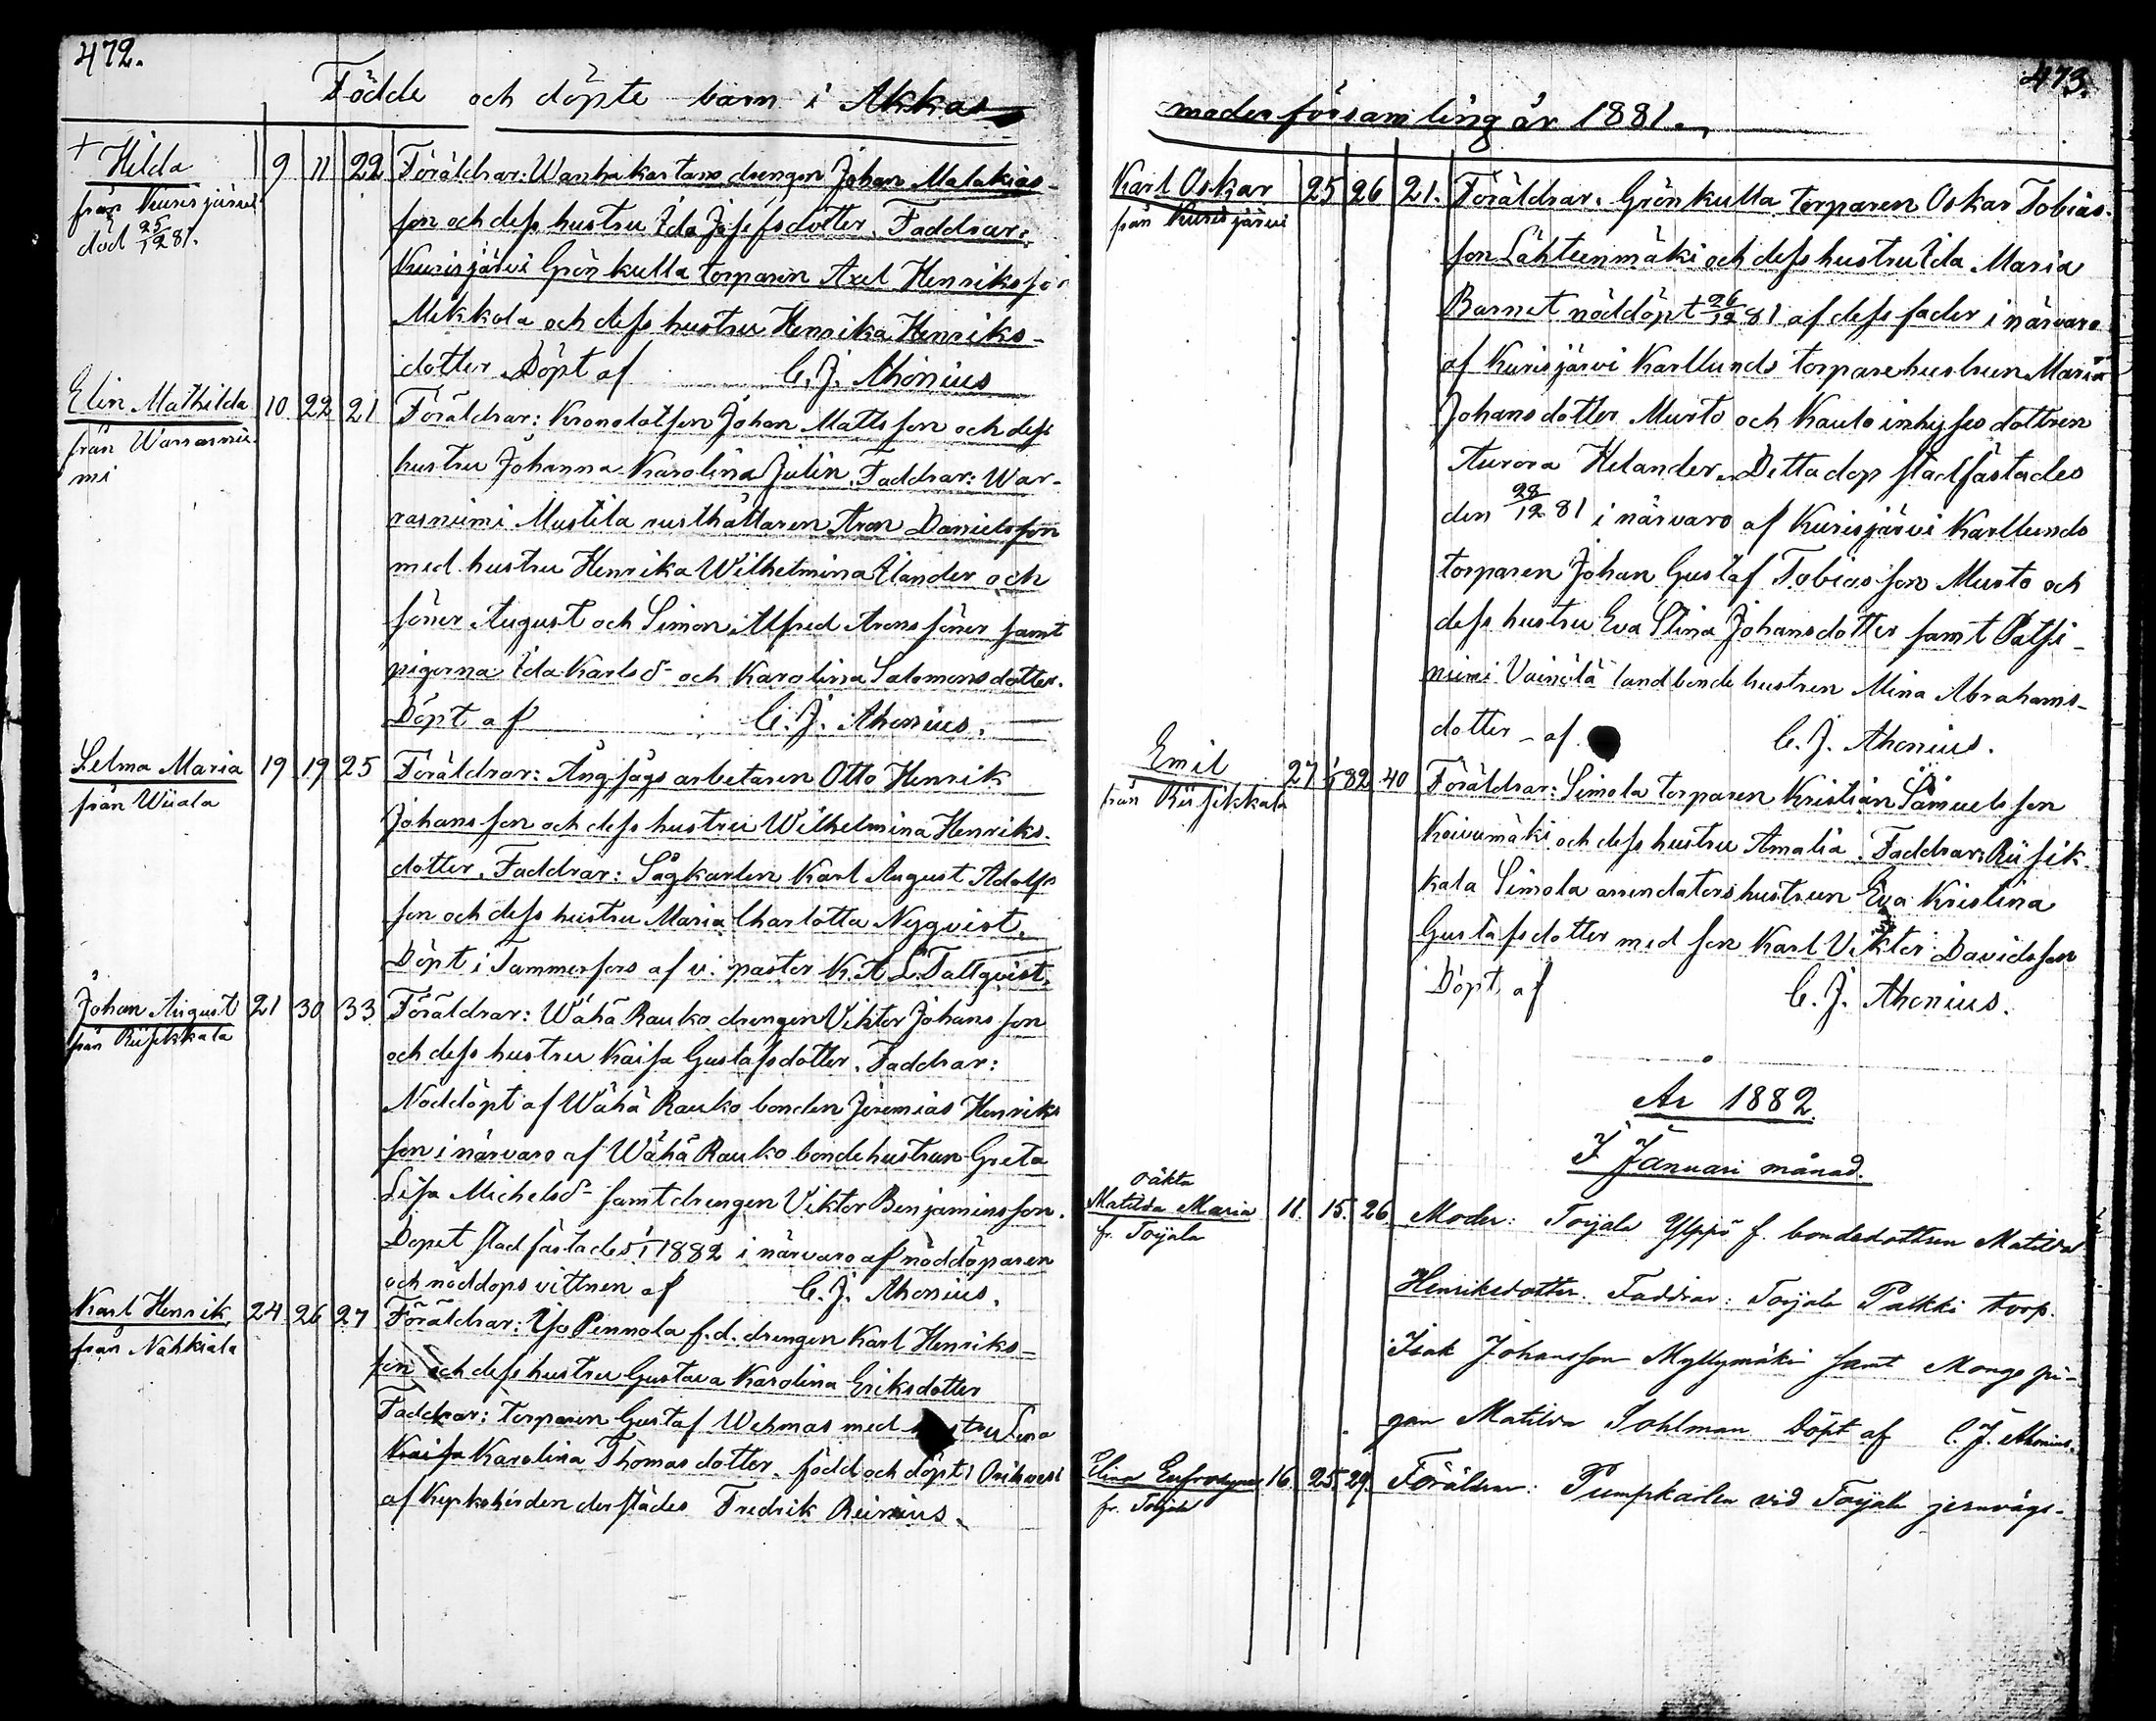 472.
Födde och döpte barn i Akkas
+ Hilda
från Kurisjärvi
död 25/12 81.
9 11 22
Föräldrar: Wanhakartano drengen Johan Malakias-
son och dess hustru Ida Josefsdotter. Faddrar:
Kurisjärvi Grönkulla torparen Axel Henriksson
Mikkola och dess hustru Henrika Henriks-
dotter. Döpt af C. J. Ahonius
Elin Mathilda
från Warrasnie-
mi
10 22 21
Föräldrar: Kronolotsen Johan Mattsson och dess
hustru Johanna Karolina Julin. Faddrar: War-
rasniemi Mustila rusthållaren Aron Danielsson
med hustru Henrika Wilhelmina Ilander och
söner August och Simon Alfred Arons söner samt
pigorna Ida Karlsd- och Karolina Salomonsdotter.
Döpt af C. J. Ahonius.
Selma Maria
från Wiiala
19 19 25
Föräldrar: Ångsågs arbetaren Otto Henrik
Johansson och dess hustru Wilhelmina Henriks-
dotter. Faddrar: Sågkarlen Karl August Adolfs
son och dess hustru Maria Charlotta Nyqvist.
Döpt i Tammerfors af v. pastor K. A. L. Tallqvist.
Johan August
från Riisikkala
21 30 33
Föräldrar: Wähä Rauko drengen Viktor Johansson
och dess hustru Kaisa Gustafsdotter. Faddrar:
Nöddöpt af Wähä Rauko bonden Jeremias Henriks
son i närvaro af Wähä Rauko bondehustrun Greta
Lisa Michelsd- samt drengen Viktor Benjaminsson.
Dopet stadfästades 1/1 1882 i närvaro af nöddöparen
och nöddopsvittnen af C. J. Ahonius.
Karl Henrik
från Nahkiala
24 26 27
Föräldrar: Yso Pennola f.d. drengen Karl Henriks-
son och dess hustru Gustava Karolina Eriksdotter
Faddrar: torparen Gustaf Wehmas med hustru Lena
Kaisa Karolina Thomasdotter. född och döpt i Orihvesi
af Kyrkoherden derstädes Fredrik Reinius.
473.
moderförsamling år 1881.
Karl Oskar
från Kurisjärvi
25 26 21.
Föräldrar: Grönkulla torparen Oskar Tobias-
son Lähteenmäki och dess hustru Ida Maria
Barnet nöddöpt 26/12 81 af dess fader i närvaro
af Kurisjärvi Karllunds torparehustrun Maria
Johansdotter Murto och Kauto inhyses dottren
Aurora Helander. Detta dop stadfästades
den 28/12 81 i närvaro af Kurisjärvi Karllunds
torparen Johan Gustaf Tobiasson Murto och
dess hustru Eva Stina Johansdotter samt Patsi-
niemi Vainölä landbonde hustrun Mina Abrahams-
dotter - af C. J. Ahonius.
Emil
från Riisikkala
27 1/1 82 40
Föräldrar: Simola torparen Kristian Samuelsson
Koivumäki och dess hustru Amalia. Faddrar: Riisik-
kala Simola arrendatorshustrun Eva Kristina
Gustafsdotter med son Karl Viktor Davidsson
Döpt af C. J. Ahonius.
År 1882.
I Januari månad.
oäkta
Matilda Maria
fr. Toijala
11. 15. 26
Moder: Toijala Yppö f. bondedottren Matilda
Henriksdotter. Faddrar: Toijala Palkki torp.
Isak Johansson Myllymäki samt Monge pi-
gan Matilda Sohlman Döpt af C. J. Ahonius.
Elina Eufrosyne
fr. Toijala
16. 25. 29.
Föräldrar: Pumpkarlen vid Toijala jernvägs-